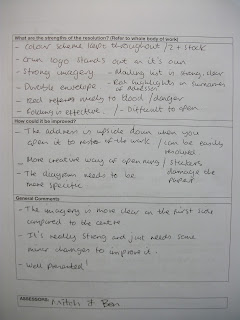 What are the strengths of the resolution? (Refer to whole body of work)
- Colour scheme kept throughout / 2 + stock
- Crun logo stands out on it's own
- Strong imagery - Mailing list is strong, clear
- Durable envelope - Rat highlights in
- Red refers nicely to blood / danger
- Folding is effective. - Difficult to open
How could it be improved?
- The address is upside down when you
open it to rest of the work / can be easily
- More creative way of opening / stickers
damage the
- The diagram needs to be paper
more specific
General Comments
- The imagery is more clear on the first side
compared to the centre
- It's really strong and just needs some
minor changes to improve it.
- Well presented!
ASSESSORS: Mitch & Ben